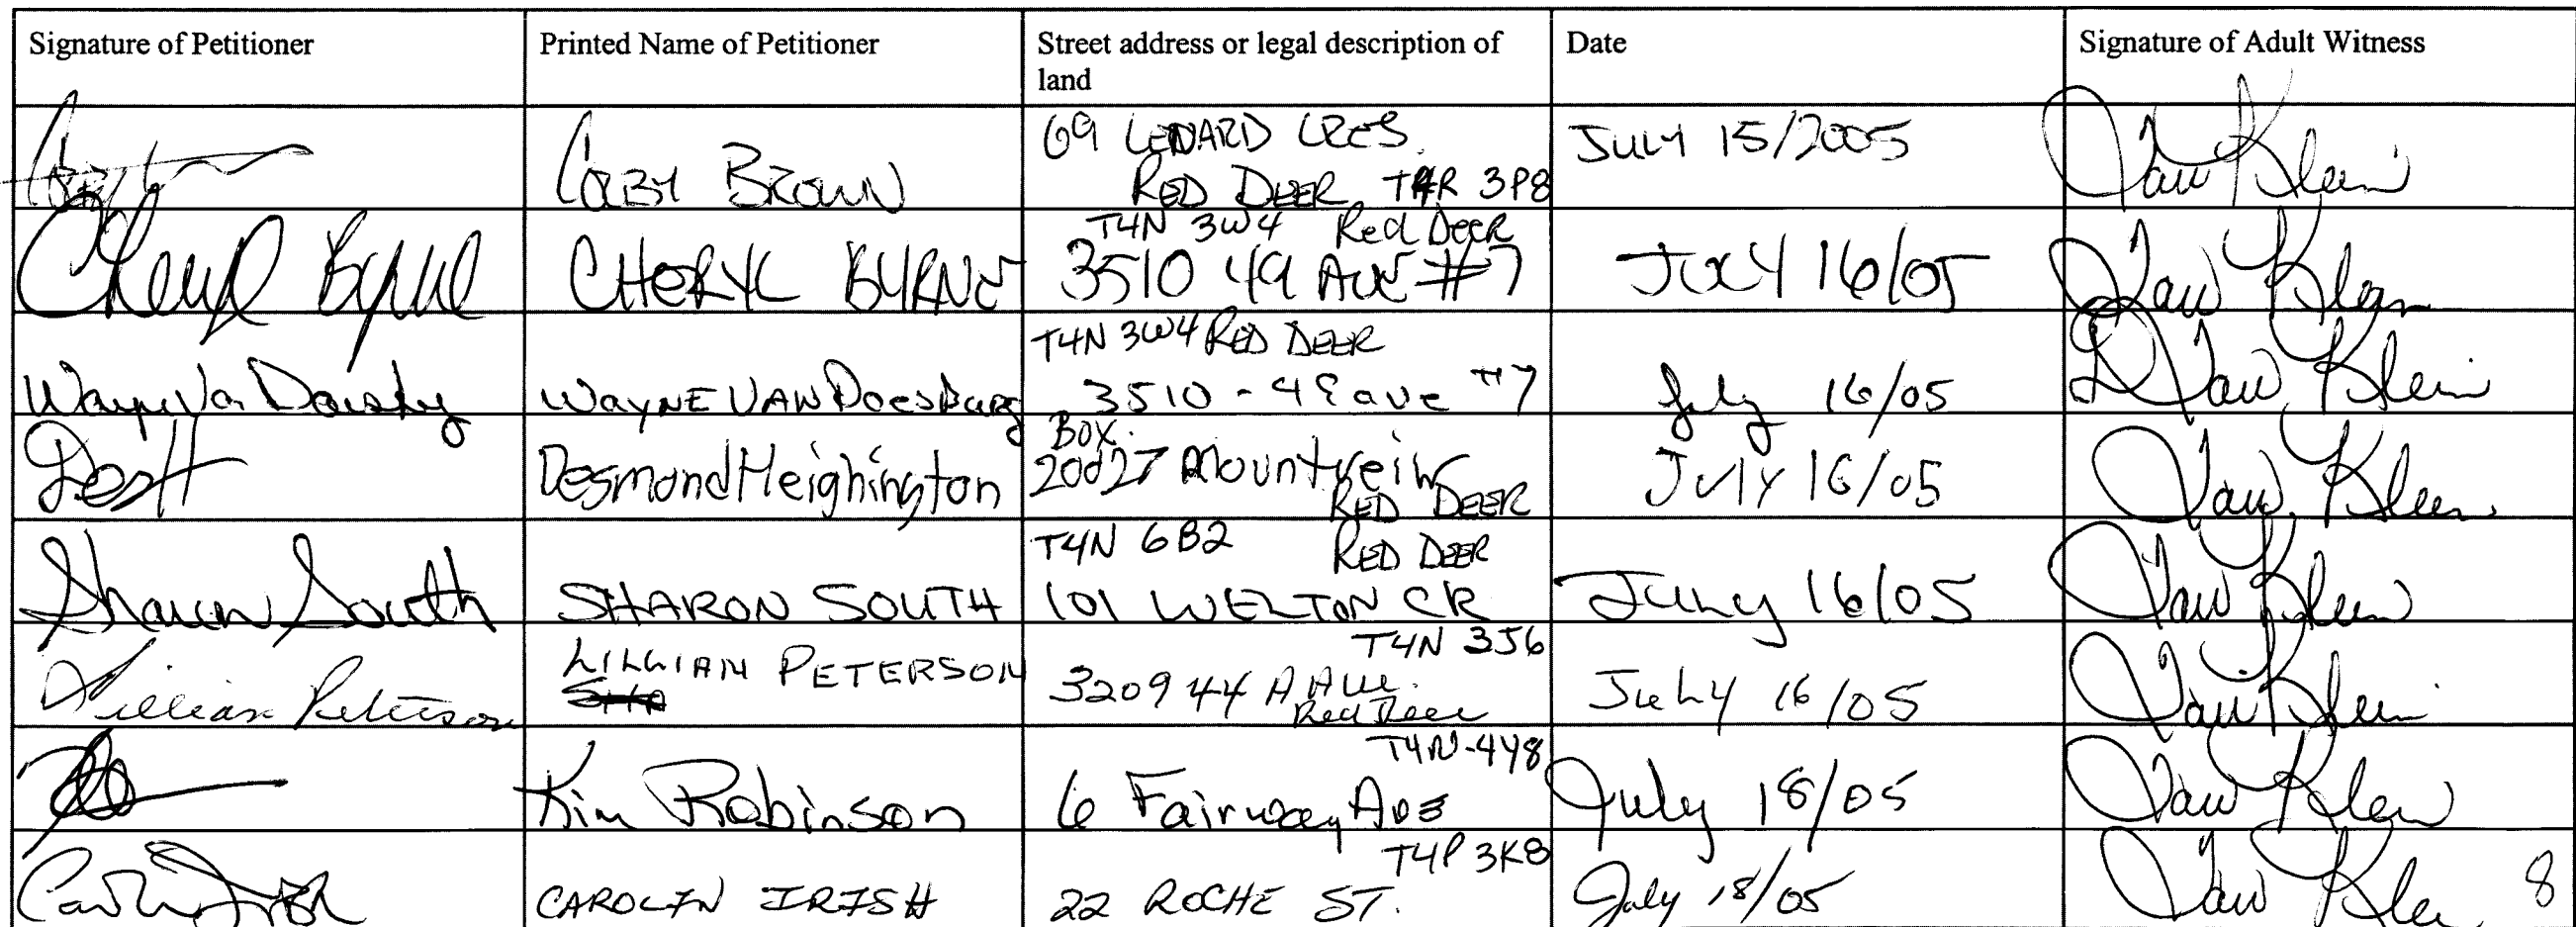 Signature of Petitioner
Printed Name of Petitioner
Street address or legal description of
land
Date
Signature of Adult Witness
COBY BROWN
69 LENARD CRES.
RED DEER T4R 3P8
JULY 15/2005
Klein
Cheryl Byrne
CHERYL BYRNE
T4N 3W4 Red Deer
3510 49 AVE #7
JULY 16/05
Klein
Wayne Van Doesburg
WAYNE VAN DOESBURG
T4N 3W4 RED DEER
3510 - 49 ave #7
July 16/05
Klein
Des H
Desmond Heighington
BOX.
20027 Mountveiw
RED DEER
July 16/05
Klein
Sharon South
SHARON SOUTH
T4N 6B2 RED DEER
101 WELTON CR
July 16/05
Klein
Lillian Peterson
LILLIAN PETERSON
T4N 3J6
3209 44 A Ave.
Red Deer
July 16/05
Klein
Kim Robinson
T4N-4Y8
6 Fairway Ave
July 18/05
Klein
CAROLYN IRISH
T4P 3K8
22 ROCHE ST.
July 18/05
Klein
8